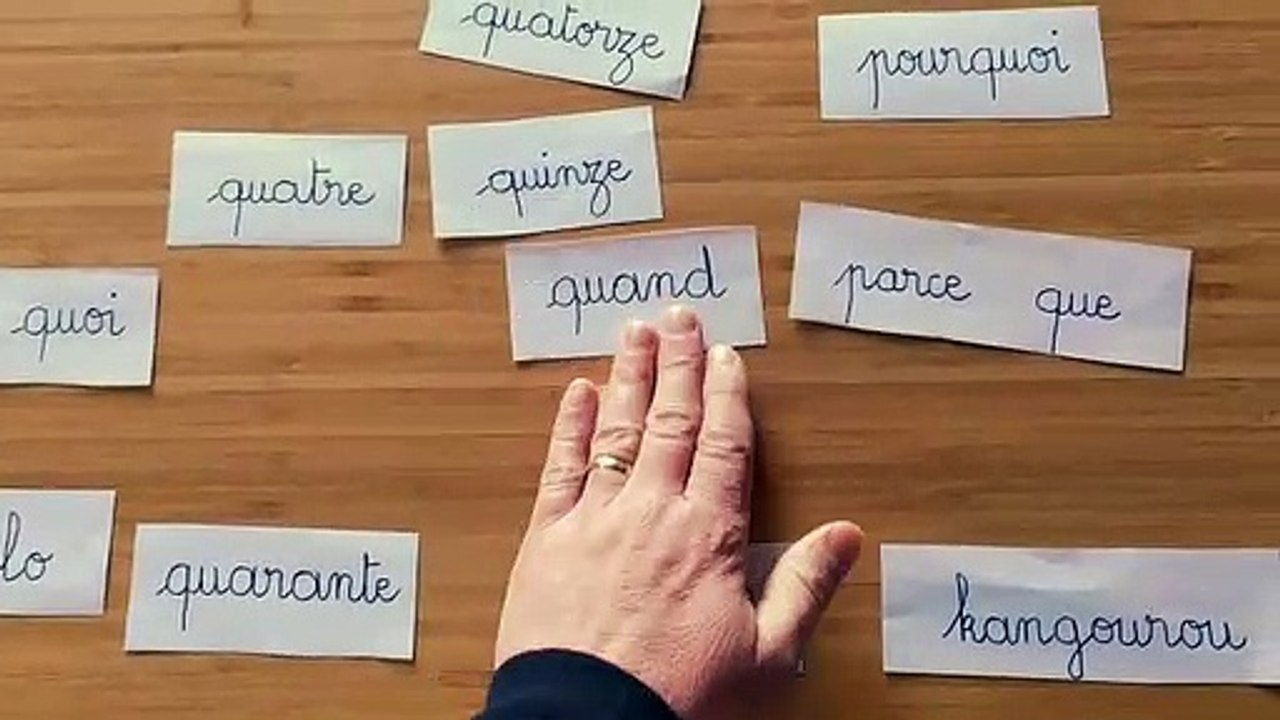 quatorze
pourquoi
quatre
quinze
quand
parce que
quoi
lo
quarante
kangourou